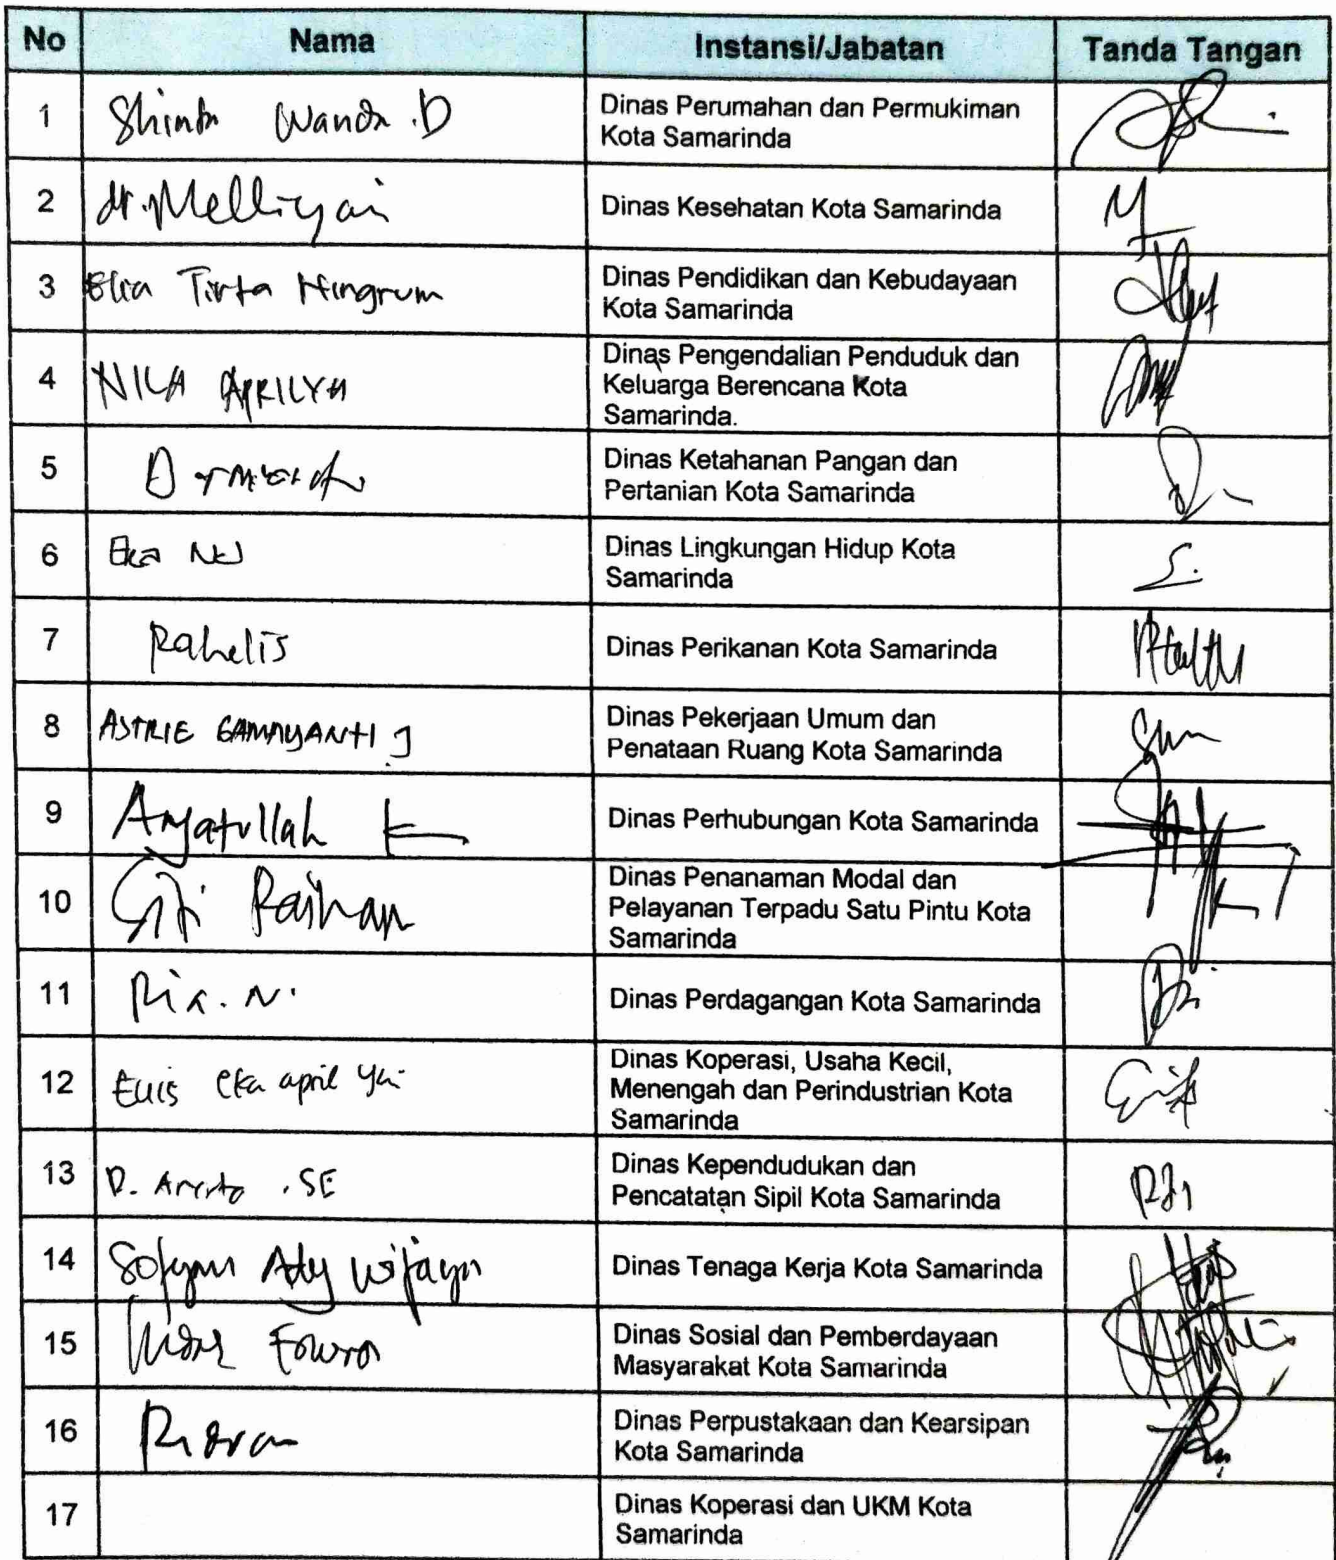 No Nama Instansi/Jabatan Tanda Tangan
1 Shinta Wanda .D Dinas Perumahan dan Permukiman
Kota Samarinda
2 dr. Melliyani Dinas Kesehatan Kota Samarinda
3 Elia Tirta Ningrum Dinas Pendidikan dan Kebudayaan
Kota Samarinda
4 NILA APRILYA Dinas Pengendalian Penduduk dan
Keluarga Berencana Kota
Samarinda.
5 Dinas Ketahanan Pangan dan
Pertanian Kota Samarinda
6 Eka Dinas Lingkungan Hidup Kota
Samarinda
7 Rahelis Dinas Perikanan Kota Samarinda
8 ASTRIE GAMAYANTI J Dinas Pekerjaan Umum dan
Penataan Ruang Kota Samarinda
9 Dinas Perhubungan Kota Samarinda
10 Siti Raihan Dinas Penanaman Modal dan
Pelayanan Terpadu Satu Pintu Kota
Samarinda
11 Ria. N. Dinas Perdagangan Kota Samarinda
12 Euis eka april Dinas Koperasi, Usaha Kecil,
Menengah dan Perindustrian Kota
Samarinda
13 .SE Dinas Kependudukan dan
Pencatatan Sipil Kota Samarinda
14 Sofyan Ady wijaya Dinas Tenaga Kerja Kota Samarinda
15 Dinas Sosial dan Pemberdayaan
Masyarakat Kota Samarinda
16 Dinas Perpustakaan dan Kearsipan
Kota Samarinda
17 Dinas Koperasi dan UKM Kota
Samarinda